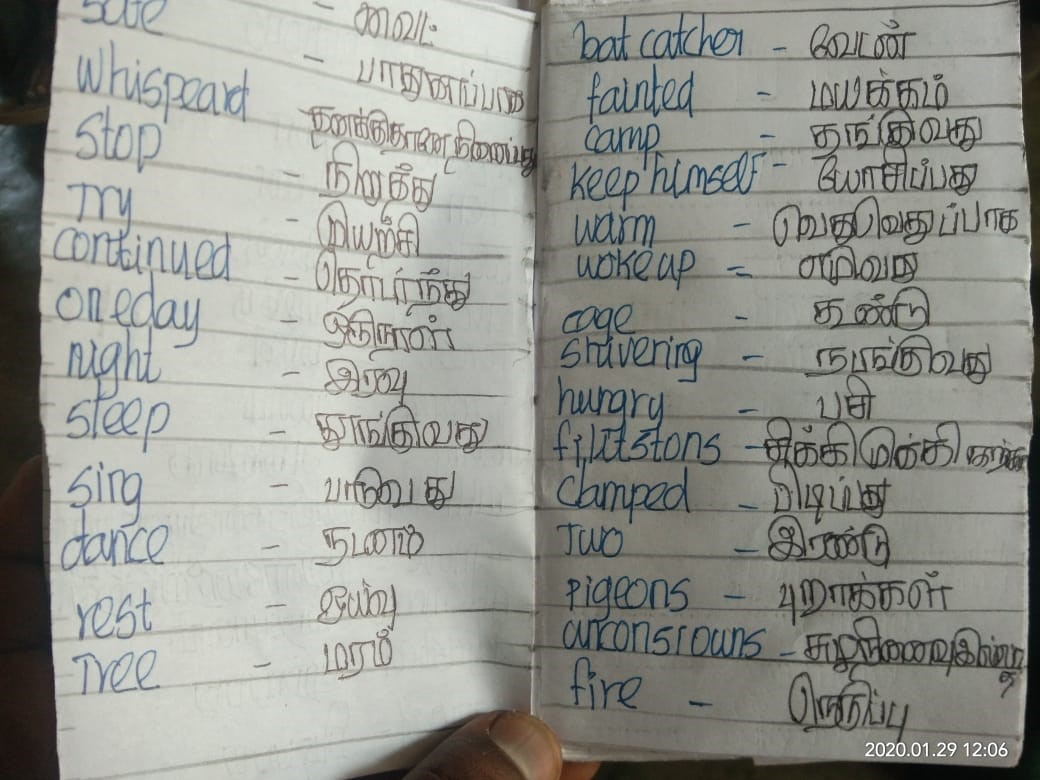 whispeard - பாதுனாப்பாக
stop
- நிறுத்து
Try - முயற்சி
continued
one day
night - இரவு
steep - தூங்குவது
sing - பாடுவது
dance - நடனம்
rest - ஓய்வு
Tree - மரம்
bat catcher - வேடன்
fainted - மயக்கம்
camp - தங்குவது
keep himself - யோசிப்பது
warm - வெதுவெதுப்பாக
woke up - எழுவது
cage - கூண்டு
shivering - நடுங்குவது
hungry - பசி
சிக்கி முக்கி
clamped - பிடிப்பது
Two - இரண்டு
pigeons - புறாக்கள்
fire - நெருப்பு
2020.01.29 12:06